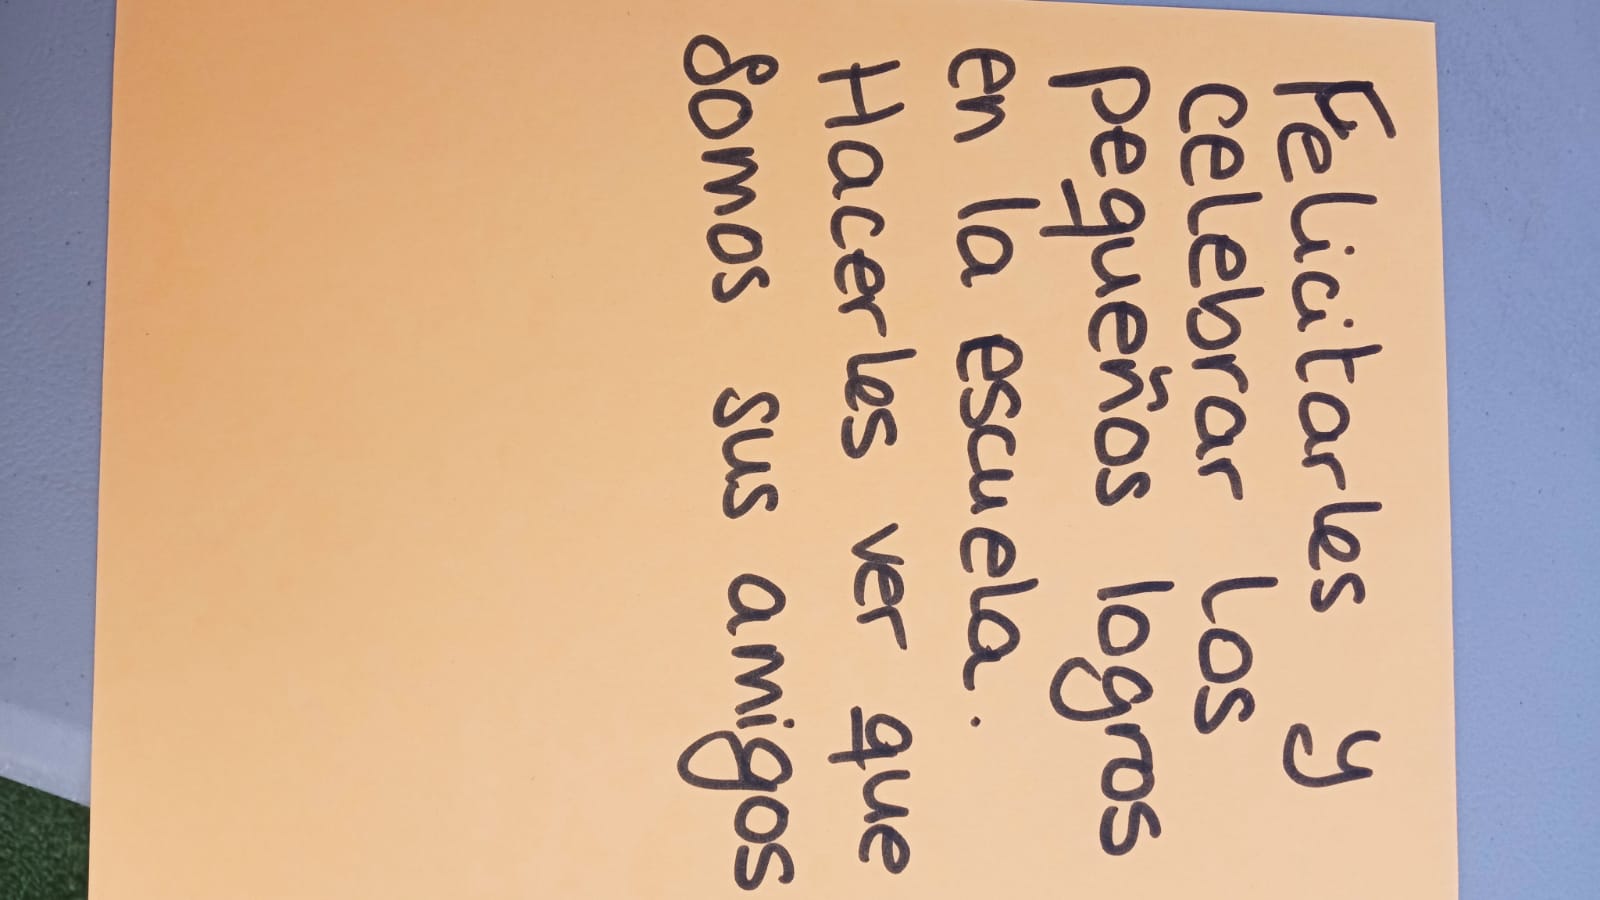 Felicitarles y
celebrar los
pequeños logros
en la escuela.
Hacerles ver que
somos sus amigos